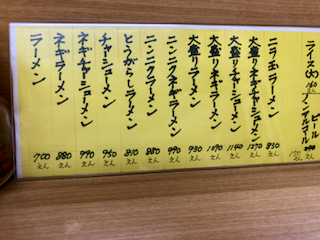 ライス(大)
160
えん
ビール
ノンアルコール
ニラ玉ラーメン
830
えん
大盛りネギチャーシューメン
1270
えん
大盛りチャーシューメン
1140
えん
大盛りネギラーメン
1090
えん
大盛りラーメン
930
えん
ニンニクネギラーメン
990
えん
ニンニクラーメン
880
えん
とうがらしラーメン
810
えん
チャーシューメン
950
えん
ネギチャーシューメン
990
えん
ネギラーメン
880
えん
ラーメン
700
えん